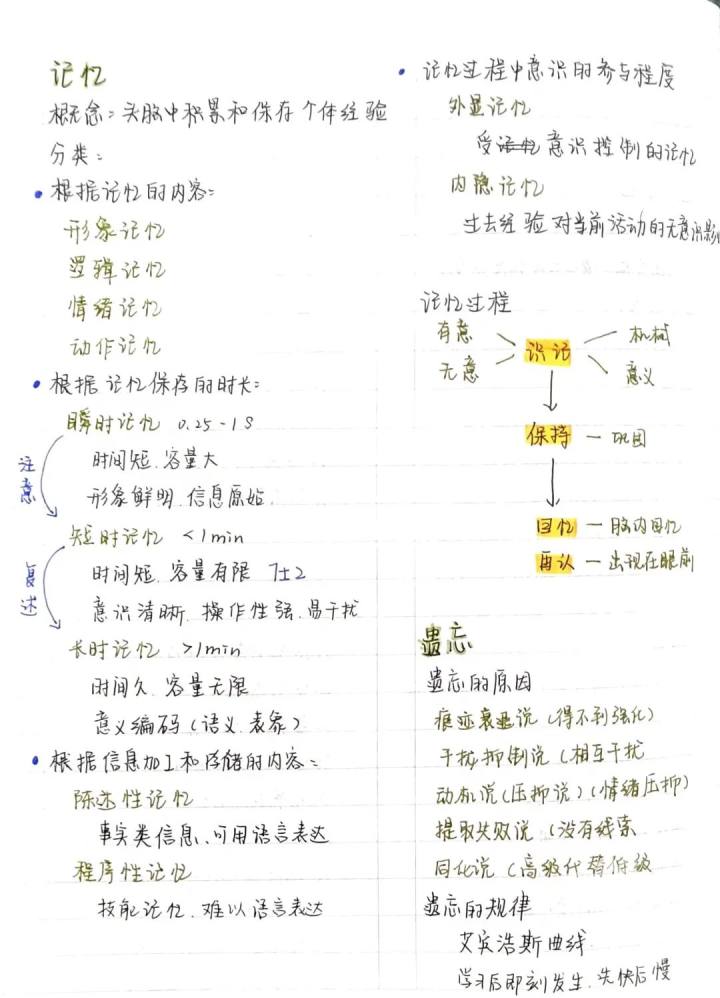 记忆
概念：头脑中积累和保存个体经验
分类：
• 根据记忆的内容：
形象记忆
逻辑记忆
情绪记忆
动作记忆
• 根据记忆保存的时长：
瞬时记忆 0.25-1S
时间短、容量大
形象鲜明、信息原始
注意
短时记忆 <1min
时间短、容量有限 7±2
意识清晰、操作性强、易干扰
复述
长时记忆 >1min
时间久、容量无限
意义编码（语义、表象）
• 根据信息加工和存储的内容：
陈述性记忆
事实类信息、可用语言表达
程序性记忆
技能记忆、难以语言表达
• 记忆过程中意识的参与程度
外显记忆
受意识控制的记忆
内隐记忆
过去经验对当前活动的无意识影
记忆过程
有意
无意
识记
机械
意义
保持 — 巩固
回忆 — 脑内回忆
再认 — 出现在眼前
遗忘
遗忘的原因
痕迹衰退说（得不到强化）
干扰抑制说（相互干扰
动机说（压抑说）（情绪压抑）
提取失败说（没有线索
同化说（高级代替低级
遗忘的规律
艾宾浩斯曲线
学习后即刻发生、先快后慢